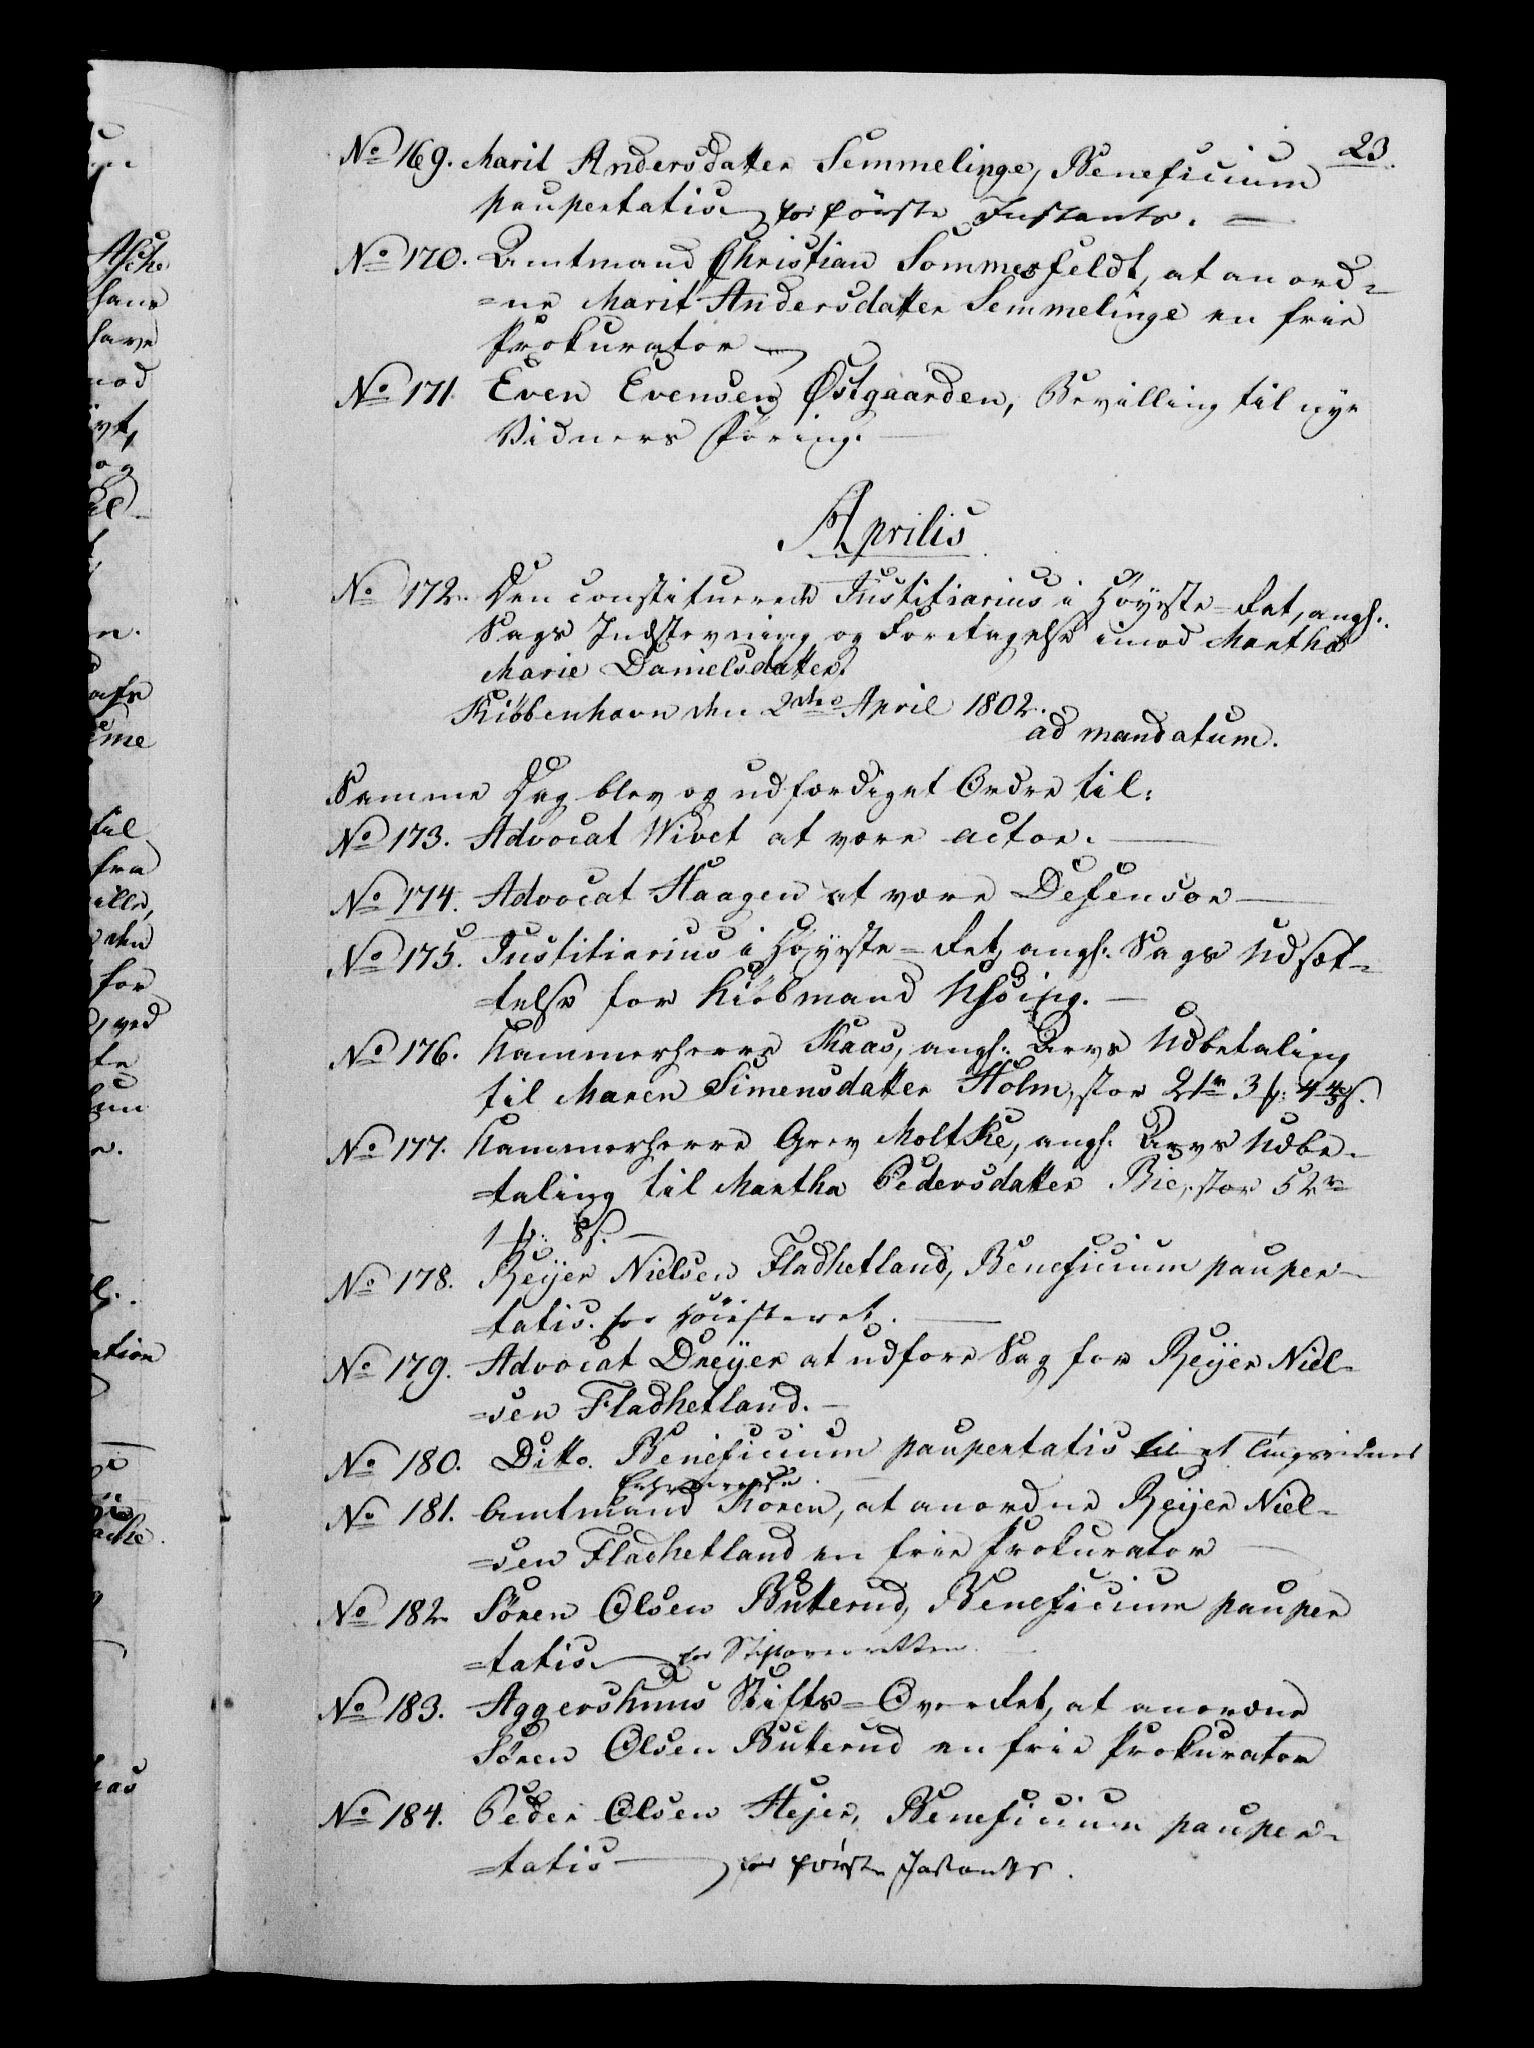 23.
No 169. Marit Andersdatter Semmelinge, Beneficium
paupertatis for förste Instants.
No 170. Amtmand Christian Sommerfeldt, at anord=
=ne Marit Andersdatter Semmelinge en frie
Prokurator
No 171. Even Evensen Østgaarden, Bevilling til nye
Vidners Föring.
Aprilis
No 172. Den constituerede Justitiarius i Höyeste=Ret, angl.
Sags Indstevning og Foretagelse imod Martha
Marie Danielsdatter.
Kiöbenhavn den 2den April 1802.
ad mandatum.
Samme Dag blev og udfærdiget Ordre til:
No 173. Advocat Wivet at være actor.
No 174. Advocat Haagen at være Defensor
No 175. Justitiarius i Höyeste=Ret, angl: Sags Udsæt=
=telse for Kiöbmand
No 176. Kammerherre Kaas, angl: Arvs Udbetaling
til Maren Simensdatter Holm, stor 21r 3
No 177. Kammerherre Grev Moltke, angl. Arvs Udbe=
=taling til Martha Pedersdatter Bie, stor 52r
1 8s.
No 178. Reijer Nielsen Fladhetland, Beneficium pauper=
tatis. for Höiesteret.
No 179. Advocat Dreÿer at udföre Sag for Reijer Niel=
=sen Fladhetland.
No 180. Ditto. Beneficium paupertatis til et Tingsvidnes
Erhvervelse.
No 181. Amtmand Koren, at anordne Reijer Niel=
=sen Fladhetland en frie Prokurator
No 182. Sören Olsen Butterud, Beneficium pauper
=tatis for Stiftsoverretten
No 183. Aggershuus Stifts=Overret, at anordne
Sören Olsen Butterud en frie Prokurator
No 184. Peder Olsen Hejer, Beneficium pauper=
=tatis for förste Instants.